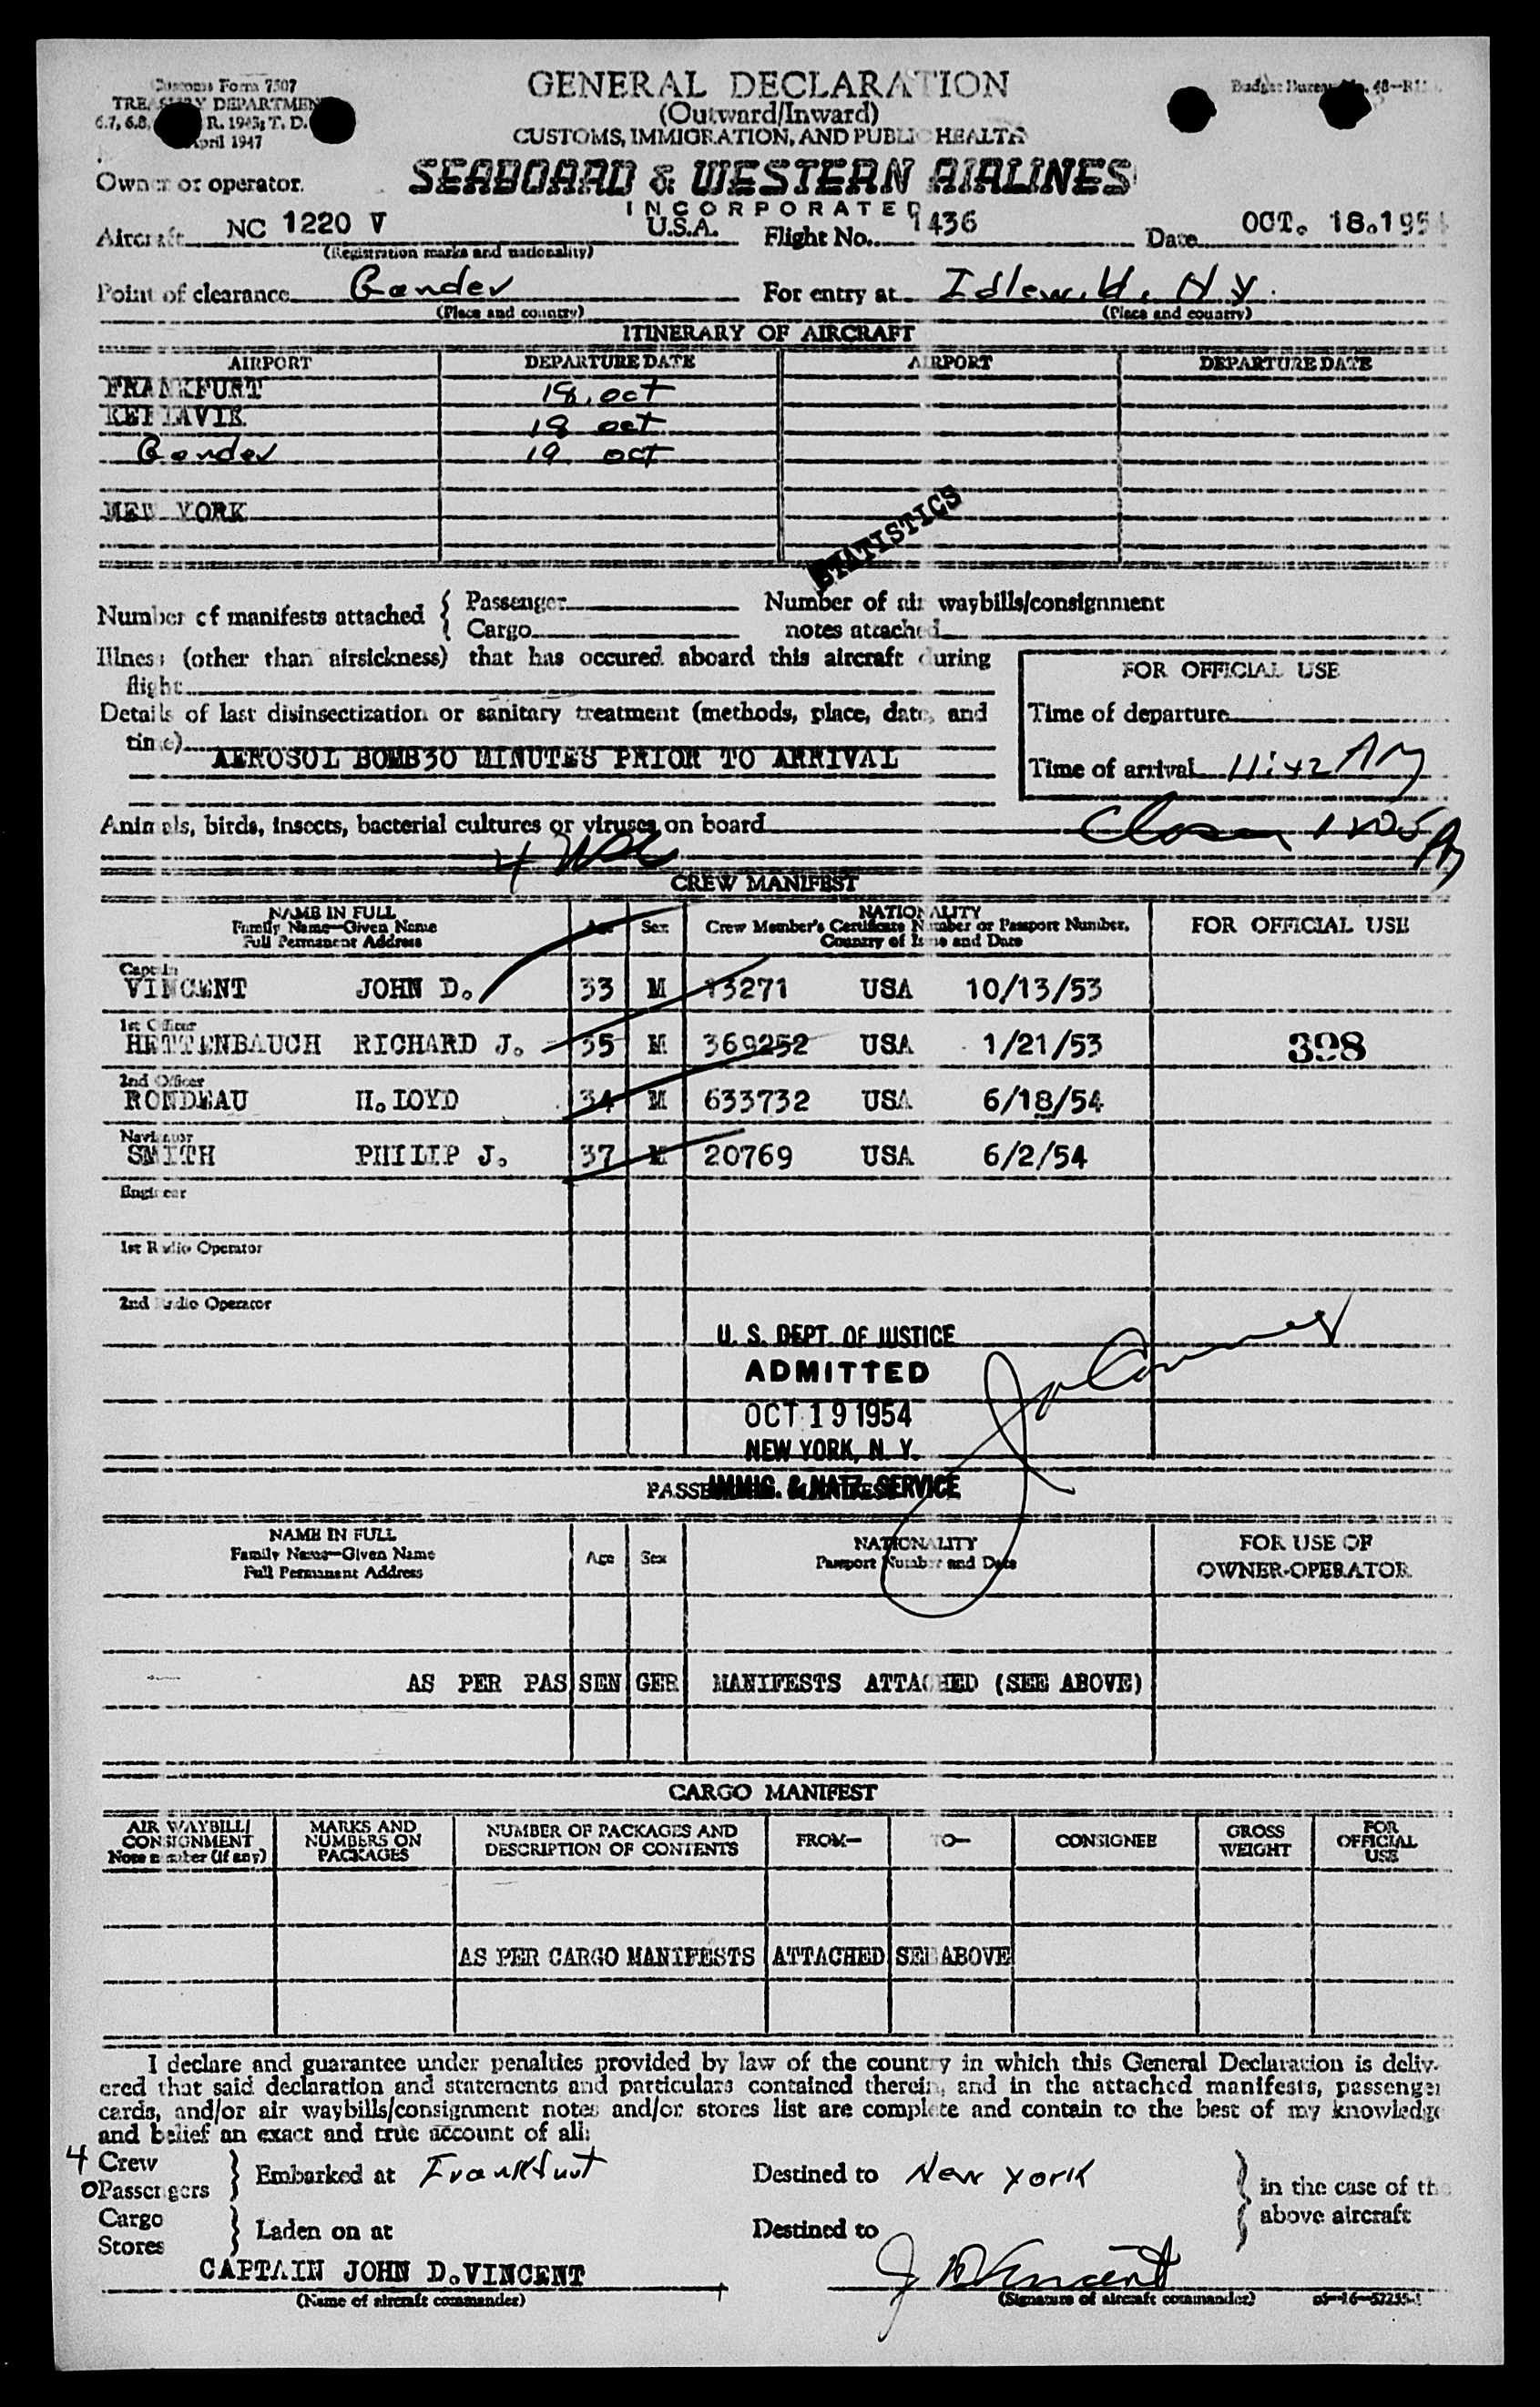 Customs Form 7507
TREASURY DEPARTMENT
6.7, 6.8, R. 1943; T. D.
April 1947
GENERAL DECLARATION
(Outward/Inward)
CUSTOMS, IMMIGRATION, AND PUBLIC HEALTH
Budget Bureau No. 48—R
Owner or operator.
SEABOARD & WESTERN AIRLINES
INCORPORATED
Aircraft NC 1220 V U.S.A. Flight No. 1436 Date OCT. 18.1954
(Registration marks and nationality)
Point of clearance Gander For entry at Idlewild, N Y.
(Place and country) (Place and country)
ITINERARY OF AIRCRAFT
AIRPORT DEPARTURE DATE AIRPORT DEPARTURE DATE
FRANKFURT 18, oct
KEFLAVIK 18 oct
Gander 19 oct
NEW YORK
STATISTICS
Number of manifests attached { Passenger Number of air waybills/consignment
Cargo notes attached
Illness (other than airsickness) that has occured aboard this aircraft during
flight
FOR OFFICIAL USE
Details of last disinsectization or sanitary treatment (methods, place, date, and
time) AEROSOL BOMB30 MINUTES PRIOR TO ARRIVAL
Time of departure
Time of arrival 11:42 AM
Animals, birds, insects, bacterial cultures or viruses, on board
4
CREW MANIFEST
NAME IN FULL
Family Name—Given Name
Full Permanent Address
Age Sex
NATIONALITY
Crew Member's Certificate Number or Passport Number,
Country of Issue and Date
FOR OFFICIAL USE
Captain
VINCENT JOHN D. 33 M 13271 USA 10/13/53
1st Officer
HETTENBAUCH RICHARD J. 35 M 369252 USA 1/21/53 398
2nd Officer
RONDEAU H. LOYD 34 M 633732 USA 6/18/54
Navigator
SMITH PHILIP J. 37 M 20769 USA 6/2/54
Engineer
1st Radio Operator
2nd Radio Operator
U. S. DEPT. OF JUSTICE
ADMITTED
OCT 19 1954
NEW YORK, N. Y.
IMMIG. & NATZ. SERVICE
NAME IN FULL
Family Name—Given Name
Full Permanent Address
Age Sex
NATIONALITY
Passport Number and Date
FOR USE OF
OWNER-OPERATOR
AS PER PASSENGER MANIFESTS ATTACHED (SEE ABOVE)
CARGO MANIFEST
AIR WAYBILL/
CONSIGNMENT
Note number (if any)
MARKS AND
NUMBERS ON
PACKAGES
NUMBER OF PACKAGES AND
DESCRIPTION OF CONTENTS
FROM— TO— CONSIGNEE
GROSS
WEIGHT
FOR
OFFICIAL
USE
AS PER CARGO MANIFESTS ATTACHED SEE ABOVE
I declare and guarantee under penalties provided by law of the country in which this General Declaration is deliv-
ered that said declaration and statements and particulars contained therein, and in the attached manifests, passenger
cards, and/or air waybills/consignment notes and/or stores list are complete and contain to the best of my knowledge
and belief an exact and true account of all:
4 Crew
0 Passengers } Embarked at Frankfurt Destined to New York } in the case of the
above aircraft
Cargo
Stores } Laden on at Destined to
CAPTAIN JOHN D. VINCENT J D Vincent
(Name of aircraft commander) (Signature of aircraft commander) 16—52255-1